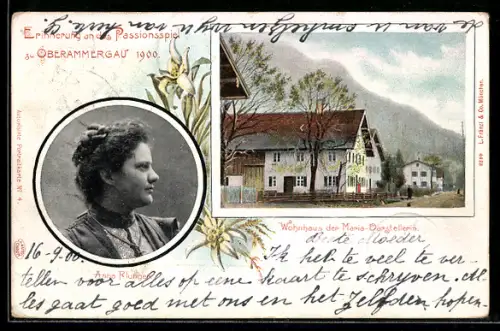 Erinnerung an das Passionsspiel
zu OBERAMMERGAU 1900.
Autorisirte Portraitkarte Nº
6299 L. Fränzl & Co. München.
Wohnhaus der Maria-Darstellerin.
Anna Flunger
16-9.00.
Beste Moeder
Ik heb te veel te ver-
tellen voor alles op eene kaart te schryven. Al-
les gaat goed met ons en het Zelfden hopen